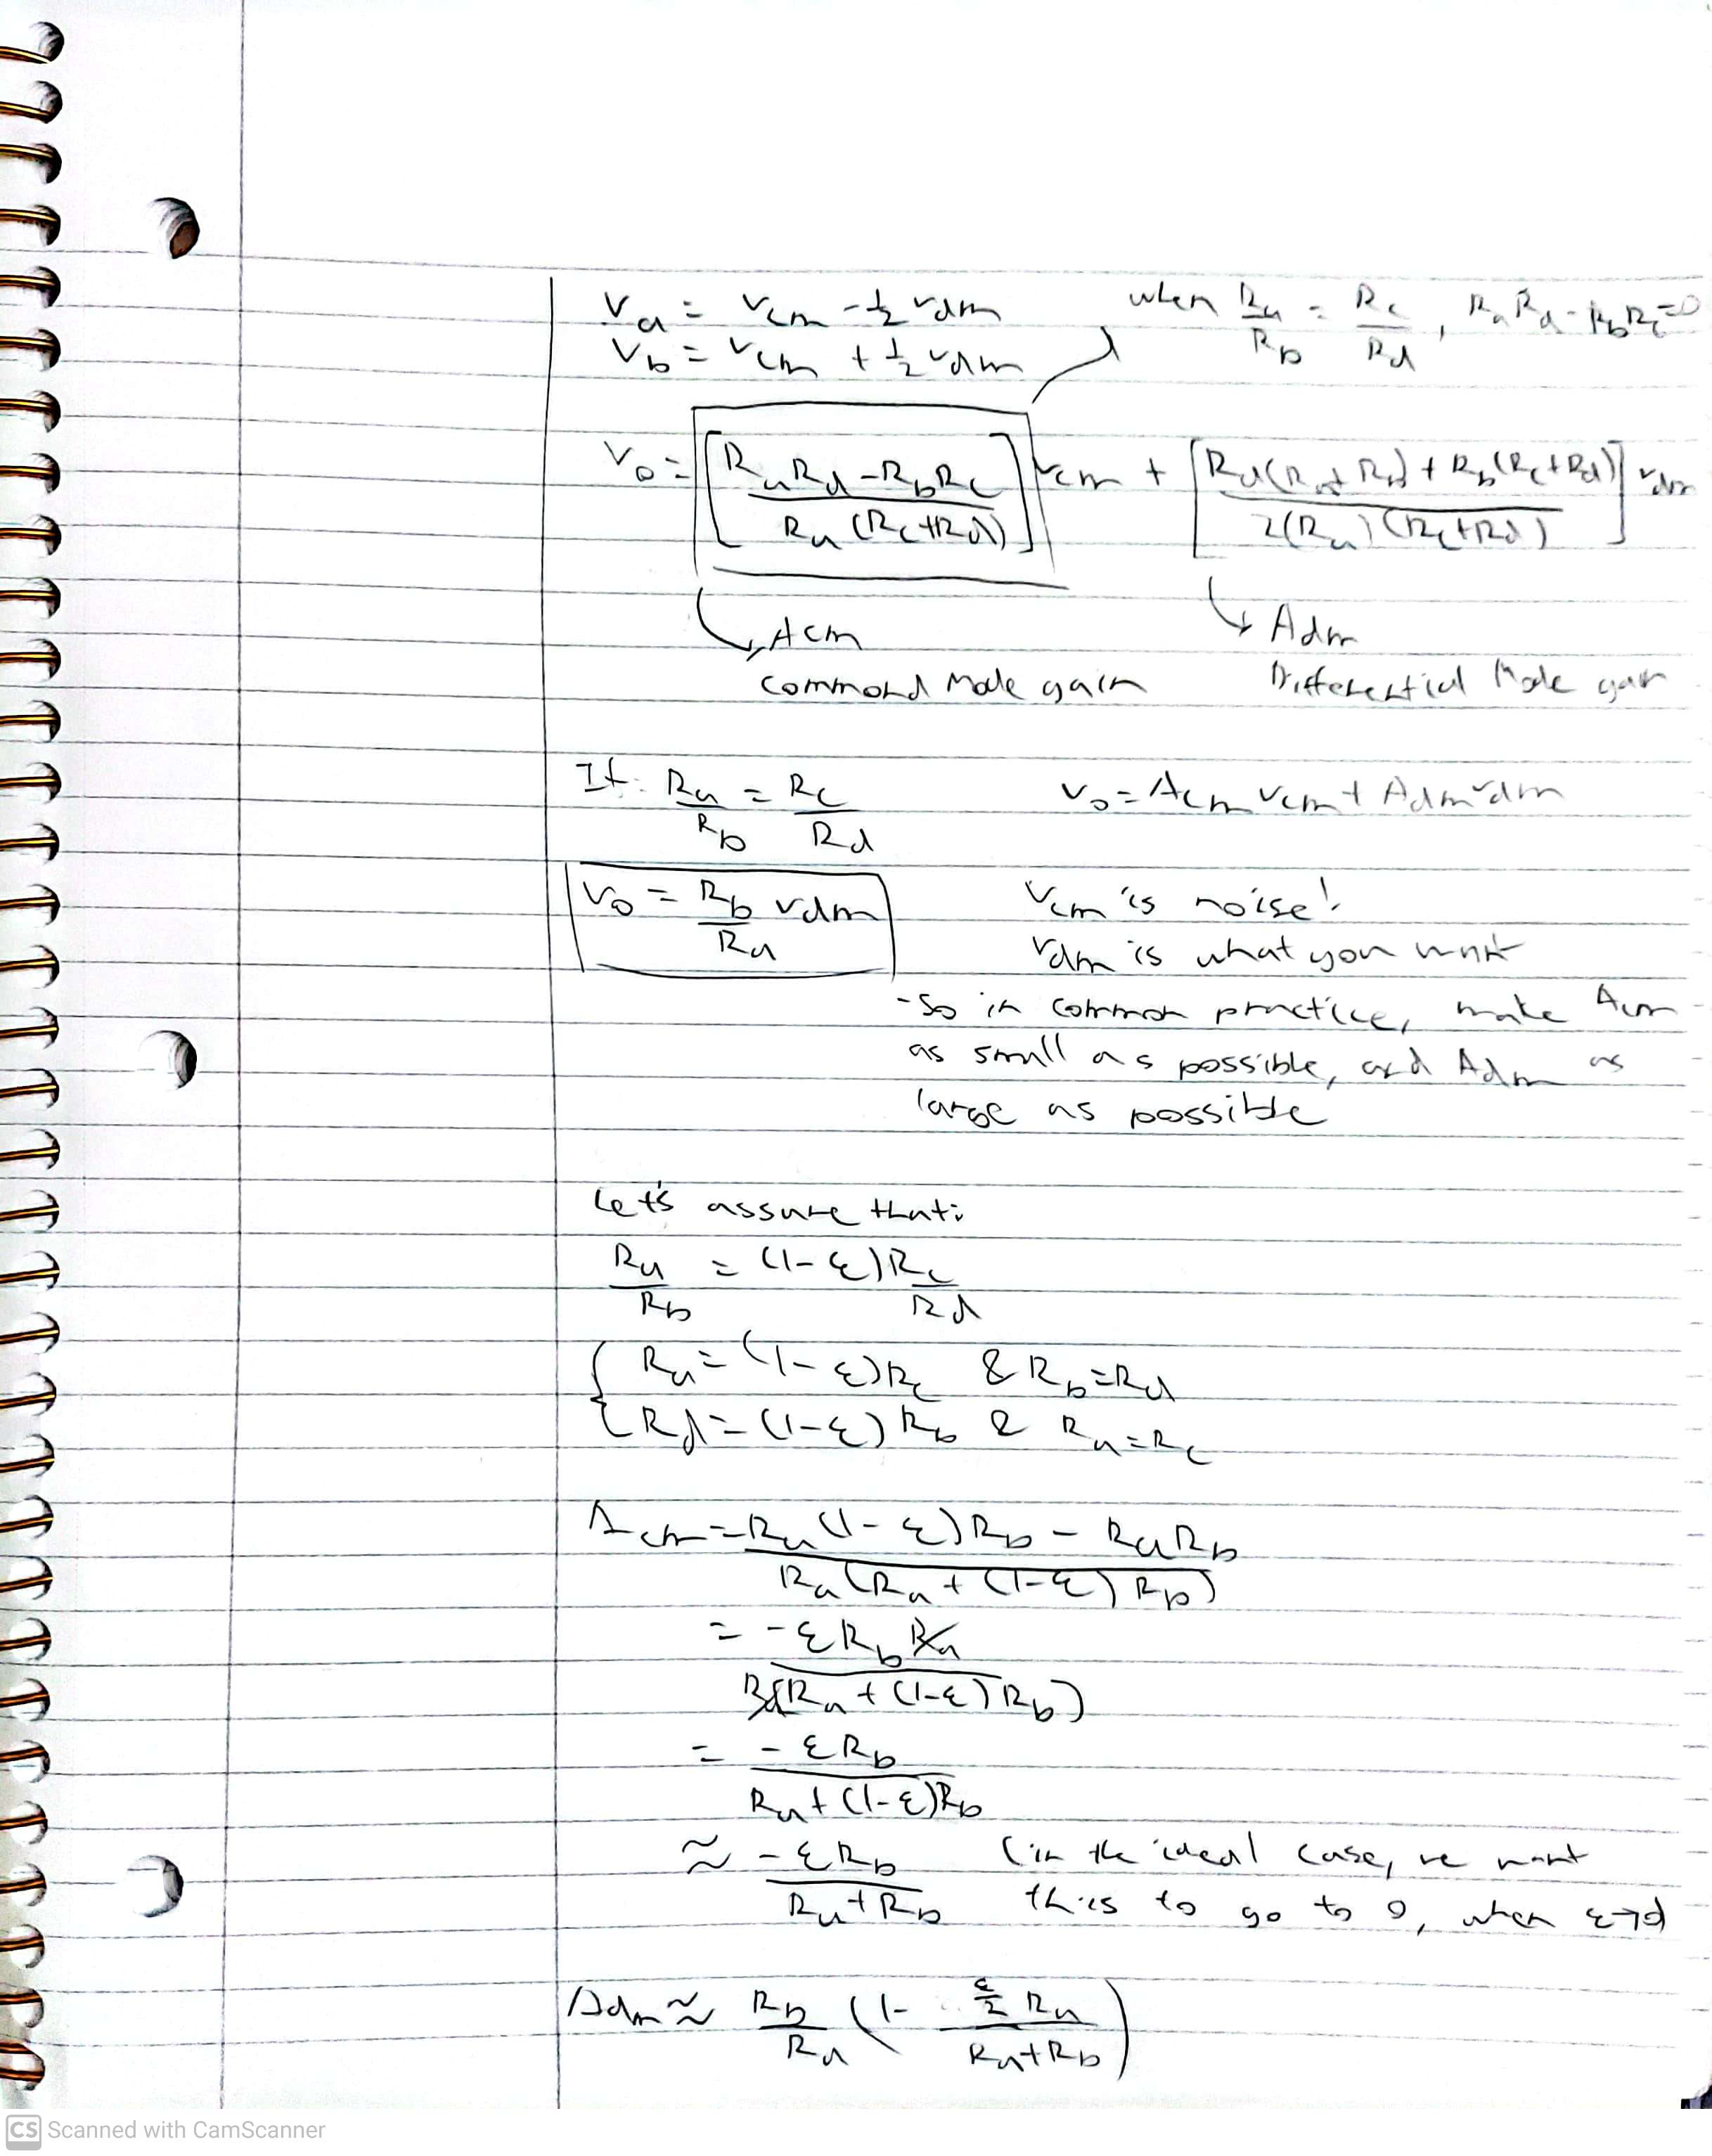 Va = Vcm - 1/2 Vdm when Ra/Rb = Rc/Rd, RaRd - RbRc = 0
Vb = Vcm + 1/2 Vdm
Vo = [(RaRd - RbRc) / (Ra(Rc+Rd))] Vcm + [(Rd(Ra+Rb) + Rb(Rc+Rd)) / (2(Ra)(Rc+Rd))] Vdm
→ Acm → Adm
Commond Mode gain Differential Mode gain
If: Ra/Rb = Rc/Rd Vo = Acm Vcm + Adm Vdm
Vo = Rb/Ra Vdm Vcm is noise!
Vdm is what you want
- So in common practice, make Acm
as small as possible, and Adm as
large as possible
Let's assume that:
Ra/Rb = (1-ε) Rc/Rd
{ Ra = (1-ε)Rc & Rb = Rd
{ Rd = (1-ε)Rb & Ra = Rc
Acm = (Ra(1-ε)Rb - RaRb) / (Ra(Ra + (1-ε)Rb))
= -εRbRa / (Ra(Ra + (1-ε)Rb))
= -εRb / (Ra + (1-ε)Rb)
≈ -εRb / (Ra + Rb) (in the ideal case, we want
this to go to 0, when ε→0
Adm ≈ Rb/Ra (1 - (ε/2 Ra) / (Ra+Rb))
CS Scanned with CamScanner